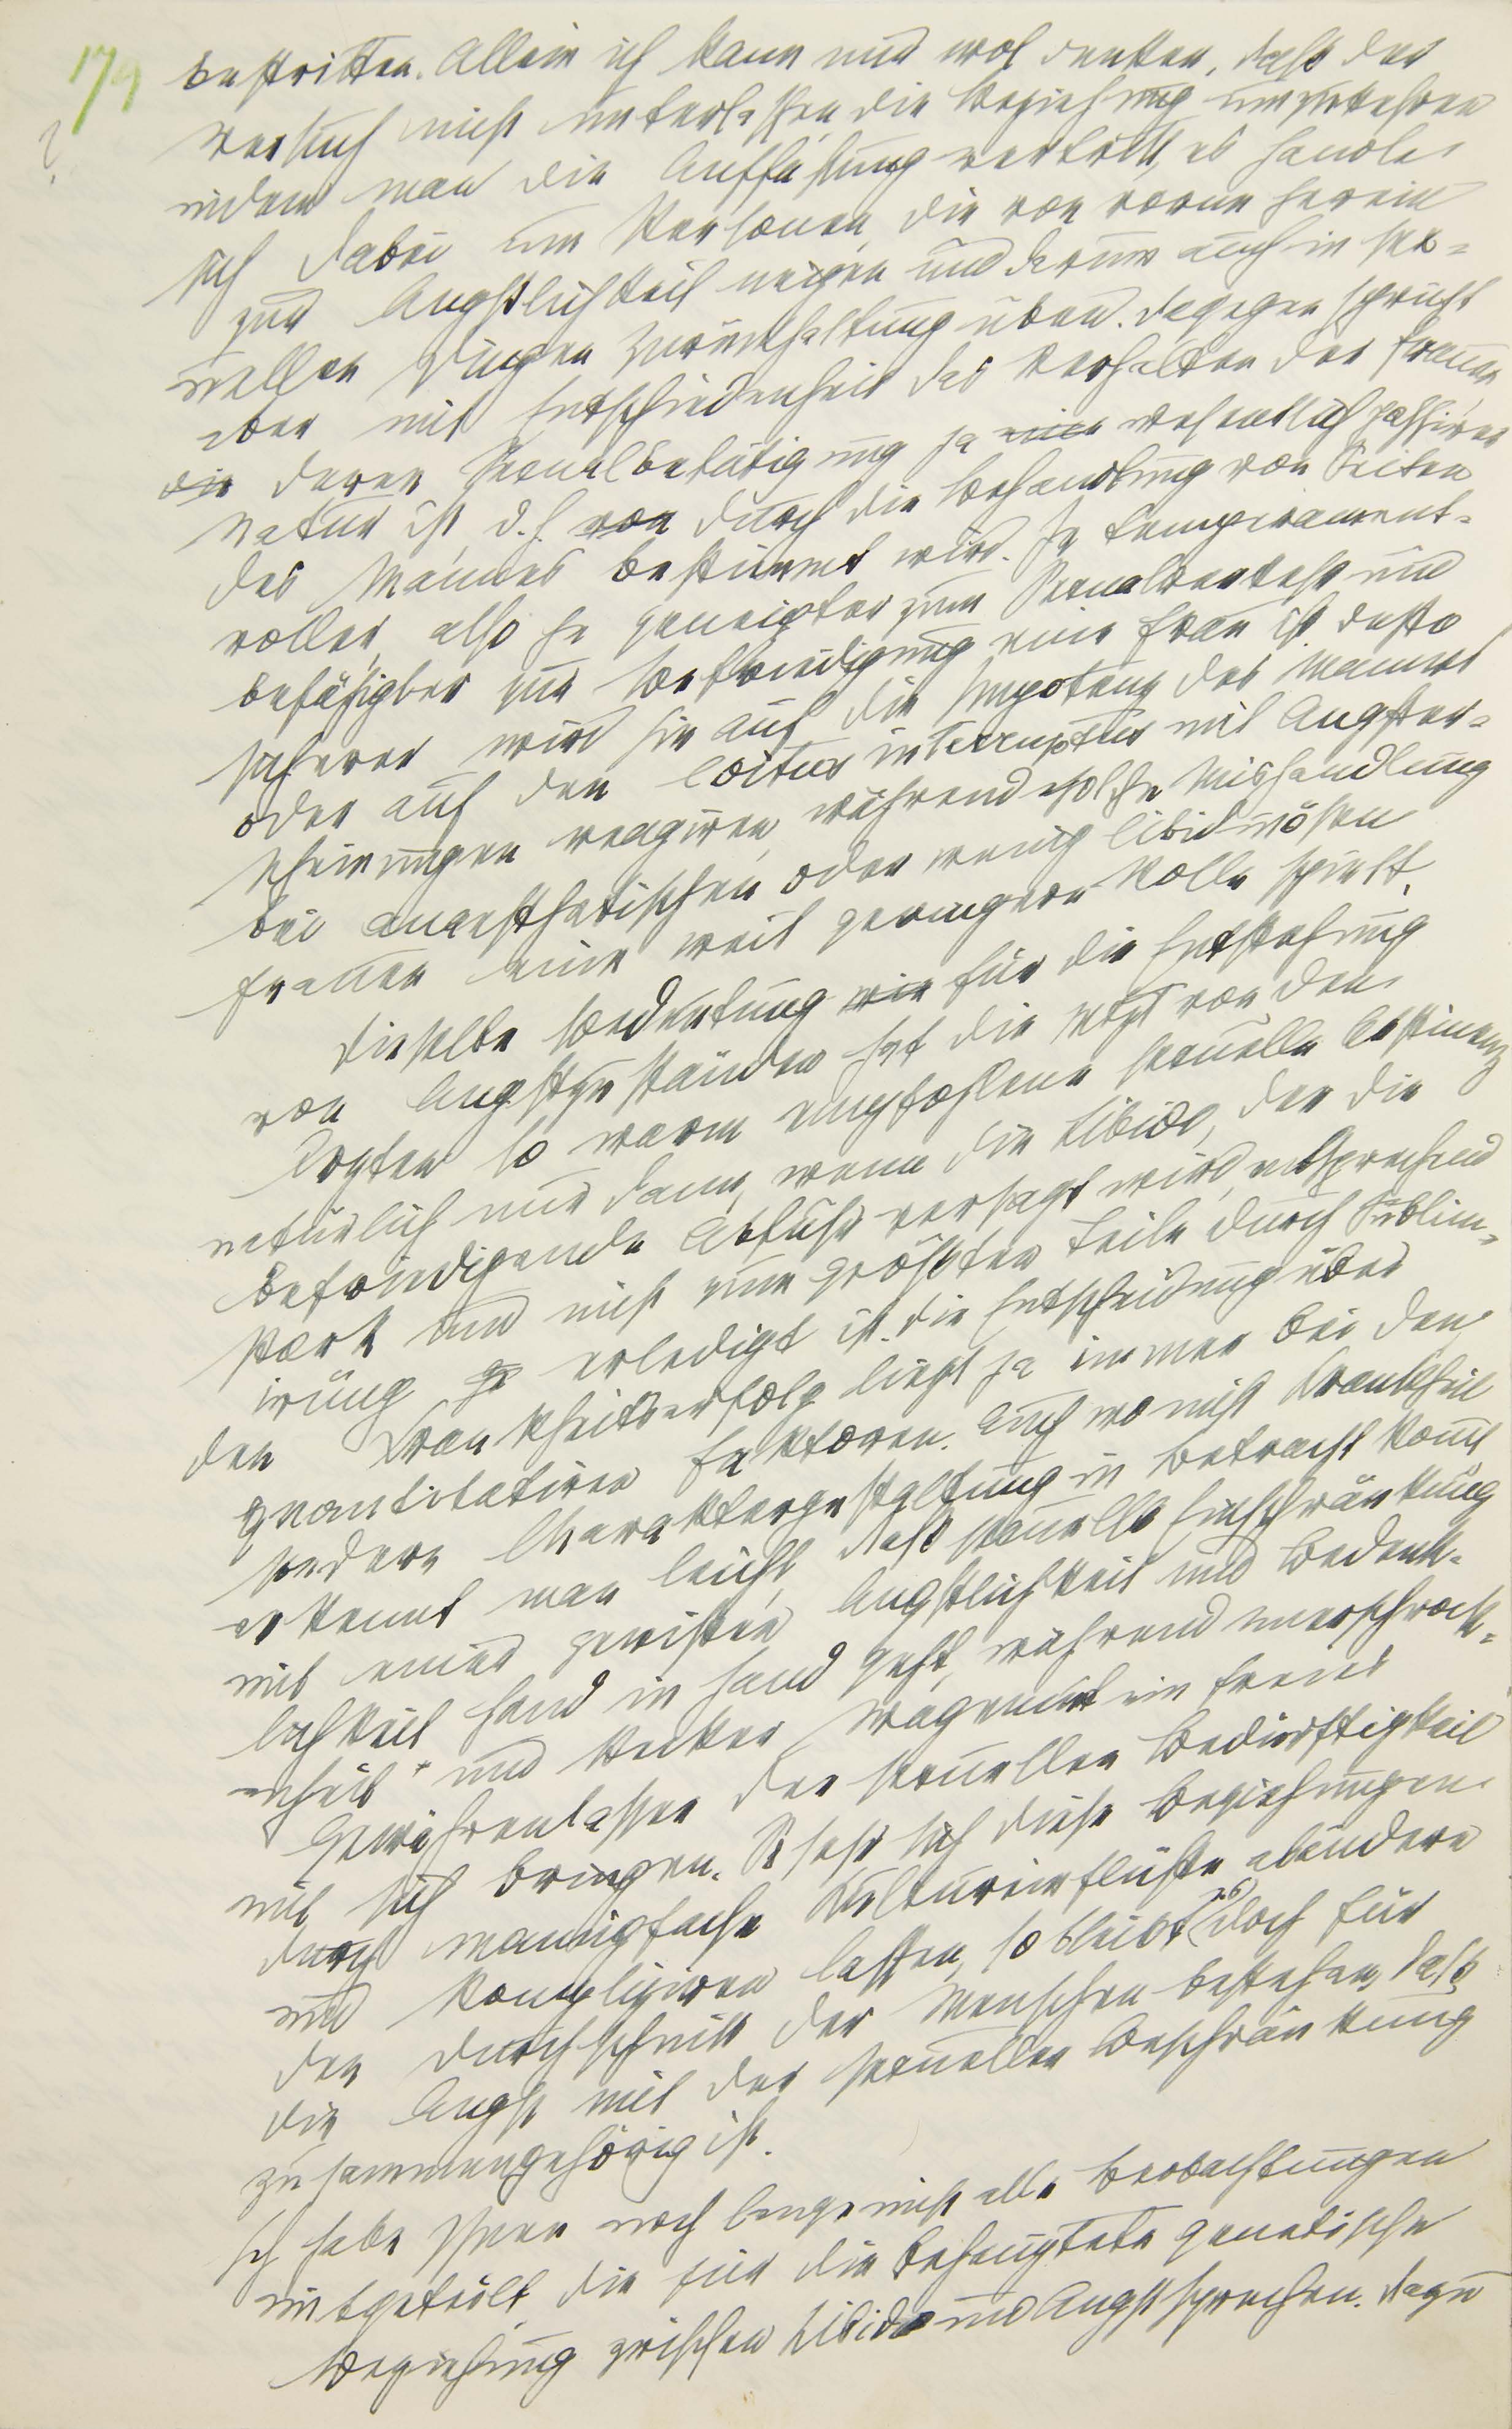 179
?
bestritten. Allein ich kann mir wol denken, daß der
Versuch nicht unterlaßen, die Beziehung umzukehren
indem man die Auffaßung vertritt, es handle
sich dabei um Personen, die von vorne herein
zur Ängstlichkeit neigen und darum auch in sex=
uellen Dingen Zurückhaltung üben. Dagegen spricht
aber mit Entschiedenheit das Verhalten der Frauen,
die deren Sexualbetätigung ja eine wesentlich passiver
Natur ist, d.h. von durch die Behandlung von Seiten
des Mannes bestimmt wird. Je temperament=
voller, also je geneigter zum Sexualverkehr und
befähigter zur Befriedigung eine Frau ist, desto
sicherer wird sie auf die Impotenz des Mannes
oder auf den Coitus interruptus mit Angster=
scheinungen reagiren, während solche Mishandlung
bei anaesthetischen oder wenig libidinösen
Frauen eine weit geringere Rolle spielt.
Dieselbe Bedeutung wie für die Entstehung
von Angstzuständen hat die jetzt von den
Ärzten so warm empfohlene sexuelle Abstinenz
natürlich nur dann, wenn die Libido, der die
befriedigende Abfuhr versagt wird, entsprechend
stark und nicht zum größten Teile durch Sublim=
irung ge erledigt ist. Die Entscheidung über
den Krankheitserfolg liegt ja immer bei den
quantitativen Faktoren. Auch wo nicht Krankheit
sondern Charaktergestaltung in Betracht komt
erkennt man leicht, daß sexuelle Einschränkung
mit einer gewißen Ängstlichkeit und Bedenk=
lichkeit Hand in Hand geht, während Unerschrock=
enheit und kecker Wagemut ein freies
Gewährenlaßen der sexuellen Bedürftigkeit
mit sich bringen. So sehr sich diese Beziehungen
durch mannigfache Kultureinflüße abändern
und kompliziren laßen, so bleibt es doch für
den Durchschnitt der Menschen bestehen, daß
die Angst mit der sexuellen Beschränkung
zusammengehörig ist.
Ich habe Ihnen noch lange nicht alle Beobachtungen
mitgeteilt, die für die behauptete genetische
Beziehung zwischen Libido und Angst sprechen. Dazu